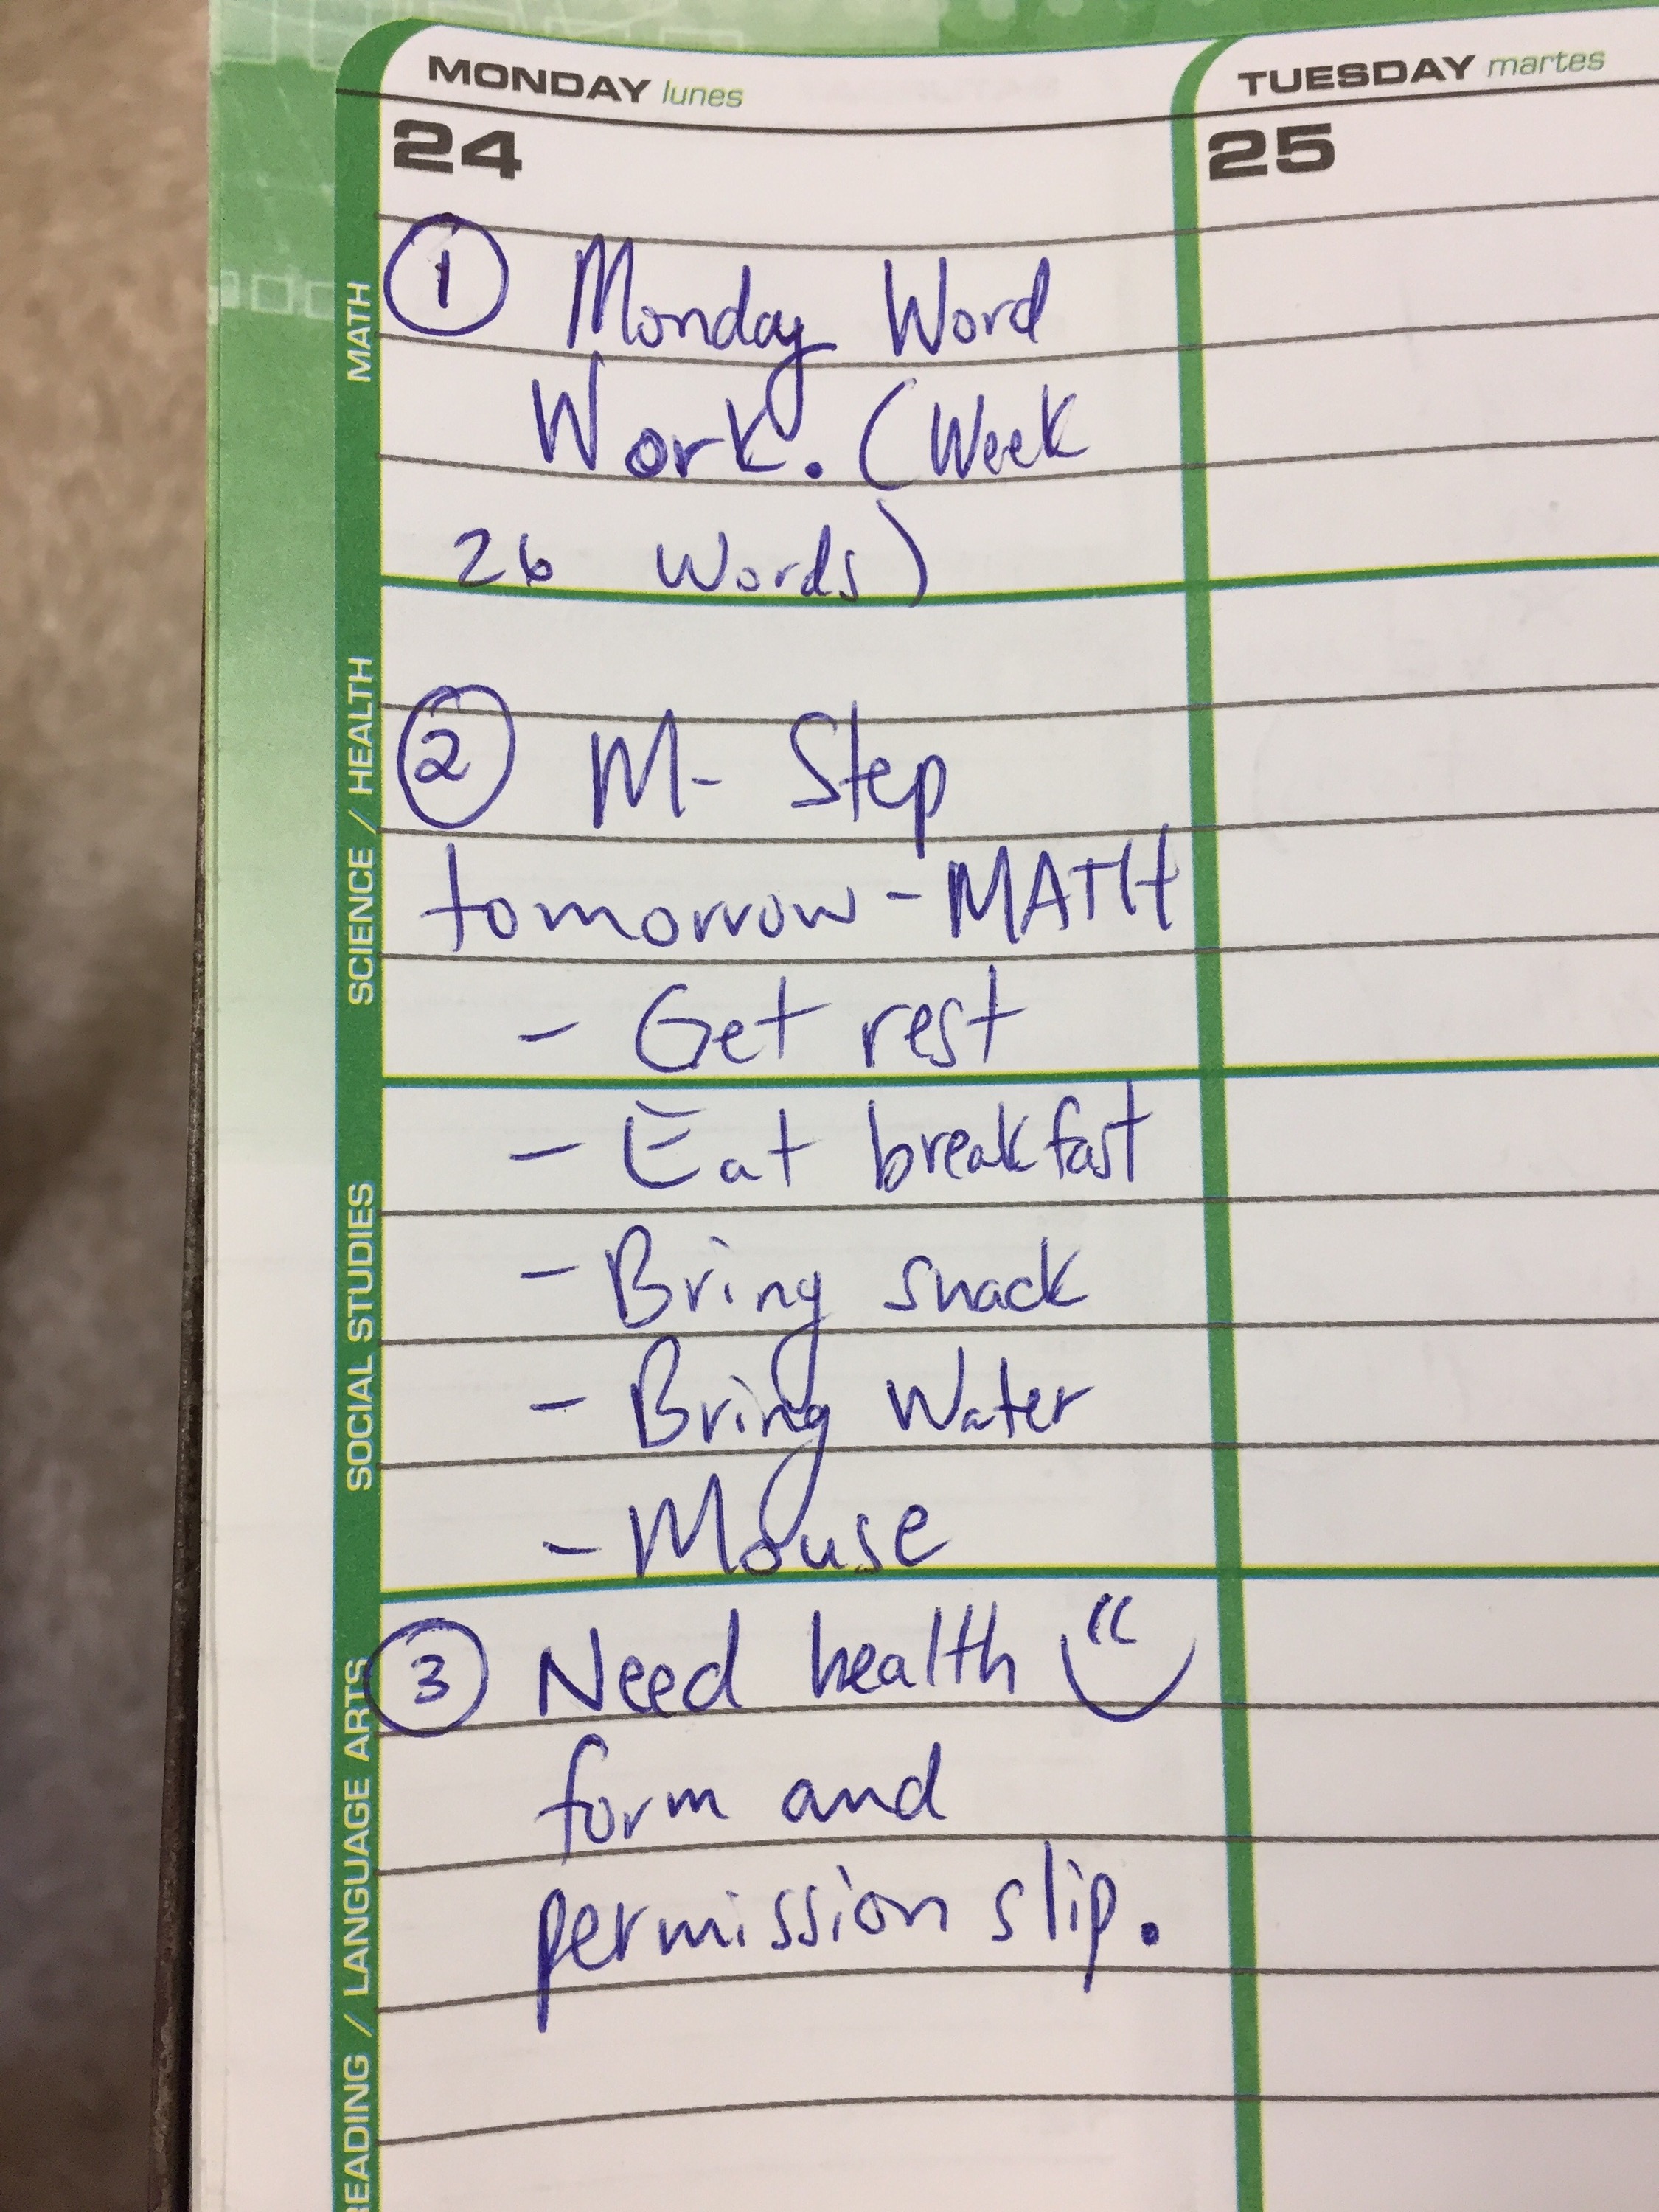 MONDAY lunes
TUESDAY martes
24
25
MATH
1 Monday Word
Work. (Week
26 Words)
SCIENCE / HEALTH
2 M- Step
tomorrow - MATH
- Get rest
SOCIAL STUDIES
- Eat breakfast
- Bring snack
- Bring Water
- Mouse
READING / LANGUAGE ARTS
3 Need health
form and
permission slip.